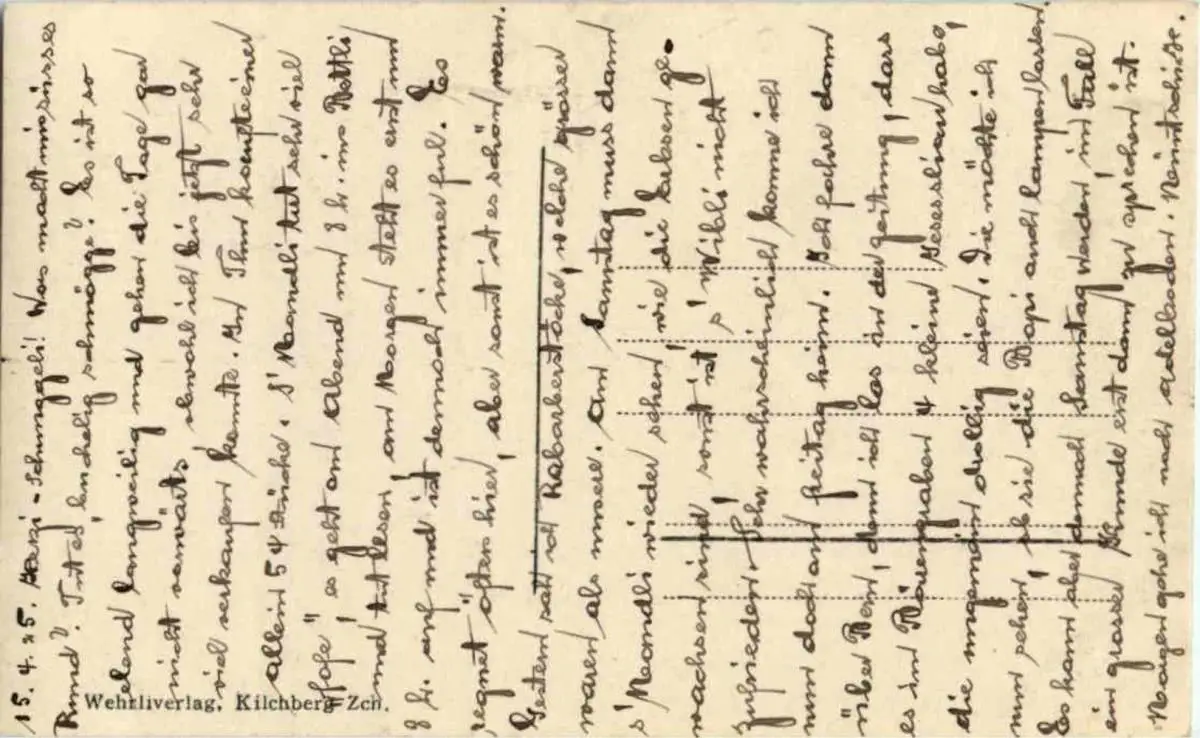 15. 4. 25. Herzi-Schnuggeli! Was macht mis süsses
Mund? Tut es lindelig schmögge? Es ist so
elend langweilig und gehen die Tage gar
nicht vorwärts, obwohl ich bis jetzt sehr
viel verkaufen konnte. In Thun kaufte einer
allein 54 Stücke. S'Mandli tut sehr viel
"pfose", es geht am Abend um 8 h. ins Bettli
und tut lesen, am Morgen steht es erst um
8 h. auf und ist dennoch immer ful. Es
regnet öfters hier, aber sonst ist es schön warm.
Gestern sah ich Rabarberstöcke, welche grösser
waren als unsere. Am Samstag muss dann
s'Mandli wieder sehen, wie die Erbsen ge-
wachsen sind, sonst ist s'Wibli nicht
zufrieden. Sehr wahrscheinlich komme ich
nun doch am Freitag heim. Ich fahre dann
über Bern, denn ich las in der Zeitung, dass
es im Bärengraben 4 kleine habe,
die ungemein drollig seien. Die möchte ich
nun sehen, ob sie die Papi auch lampen lassen.
Es kann aber dennoch Samstag werden, im Fall
ein grosser Kunde erst dann zu sprechen ist.
Morgen gehe ich nach Adelboden.
Wehrliverlag, Kilchberg-Zch.